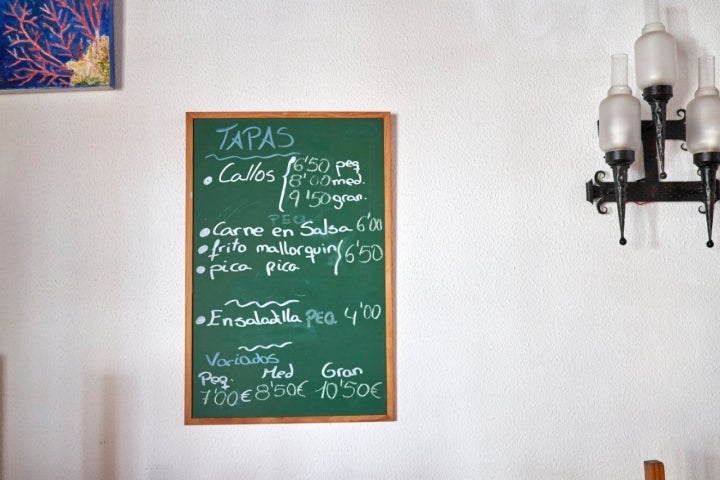 TAPAS
• Callos { 6'50 peq
8'00 med.
9'50 gran.
PEQ
• Carne en Salsa 6'00
• frito mallorquin } 6'50
• pica pica
• Ensaladilla PEQ 4'00
Variados
Peq. Med Gran
7'00€ 8'50€ 10'50€